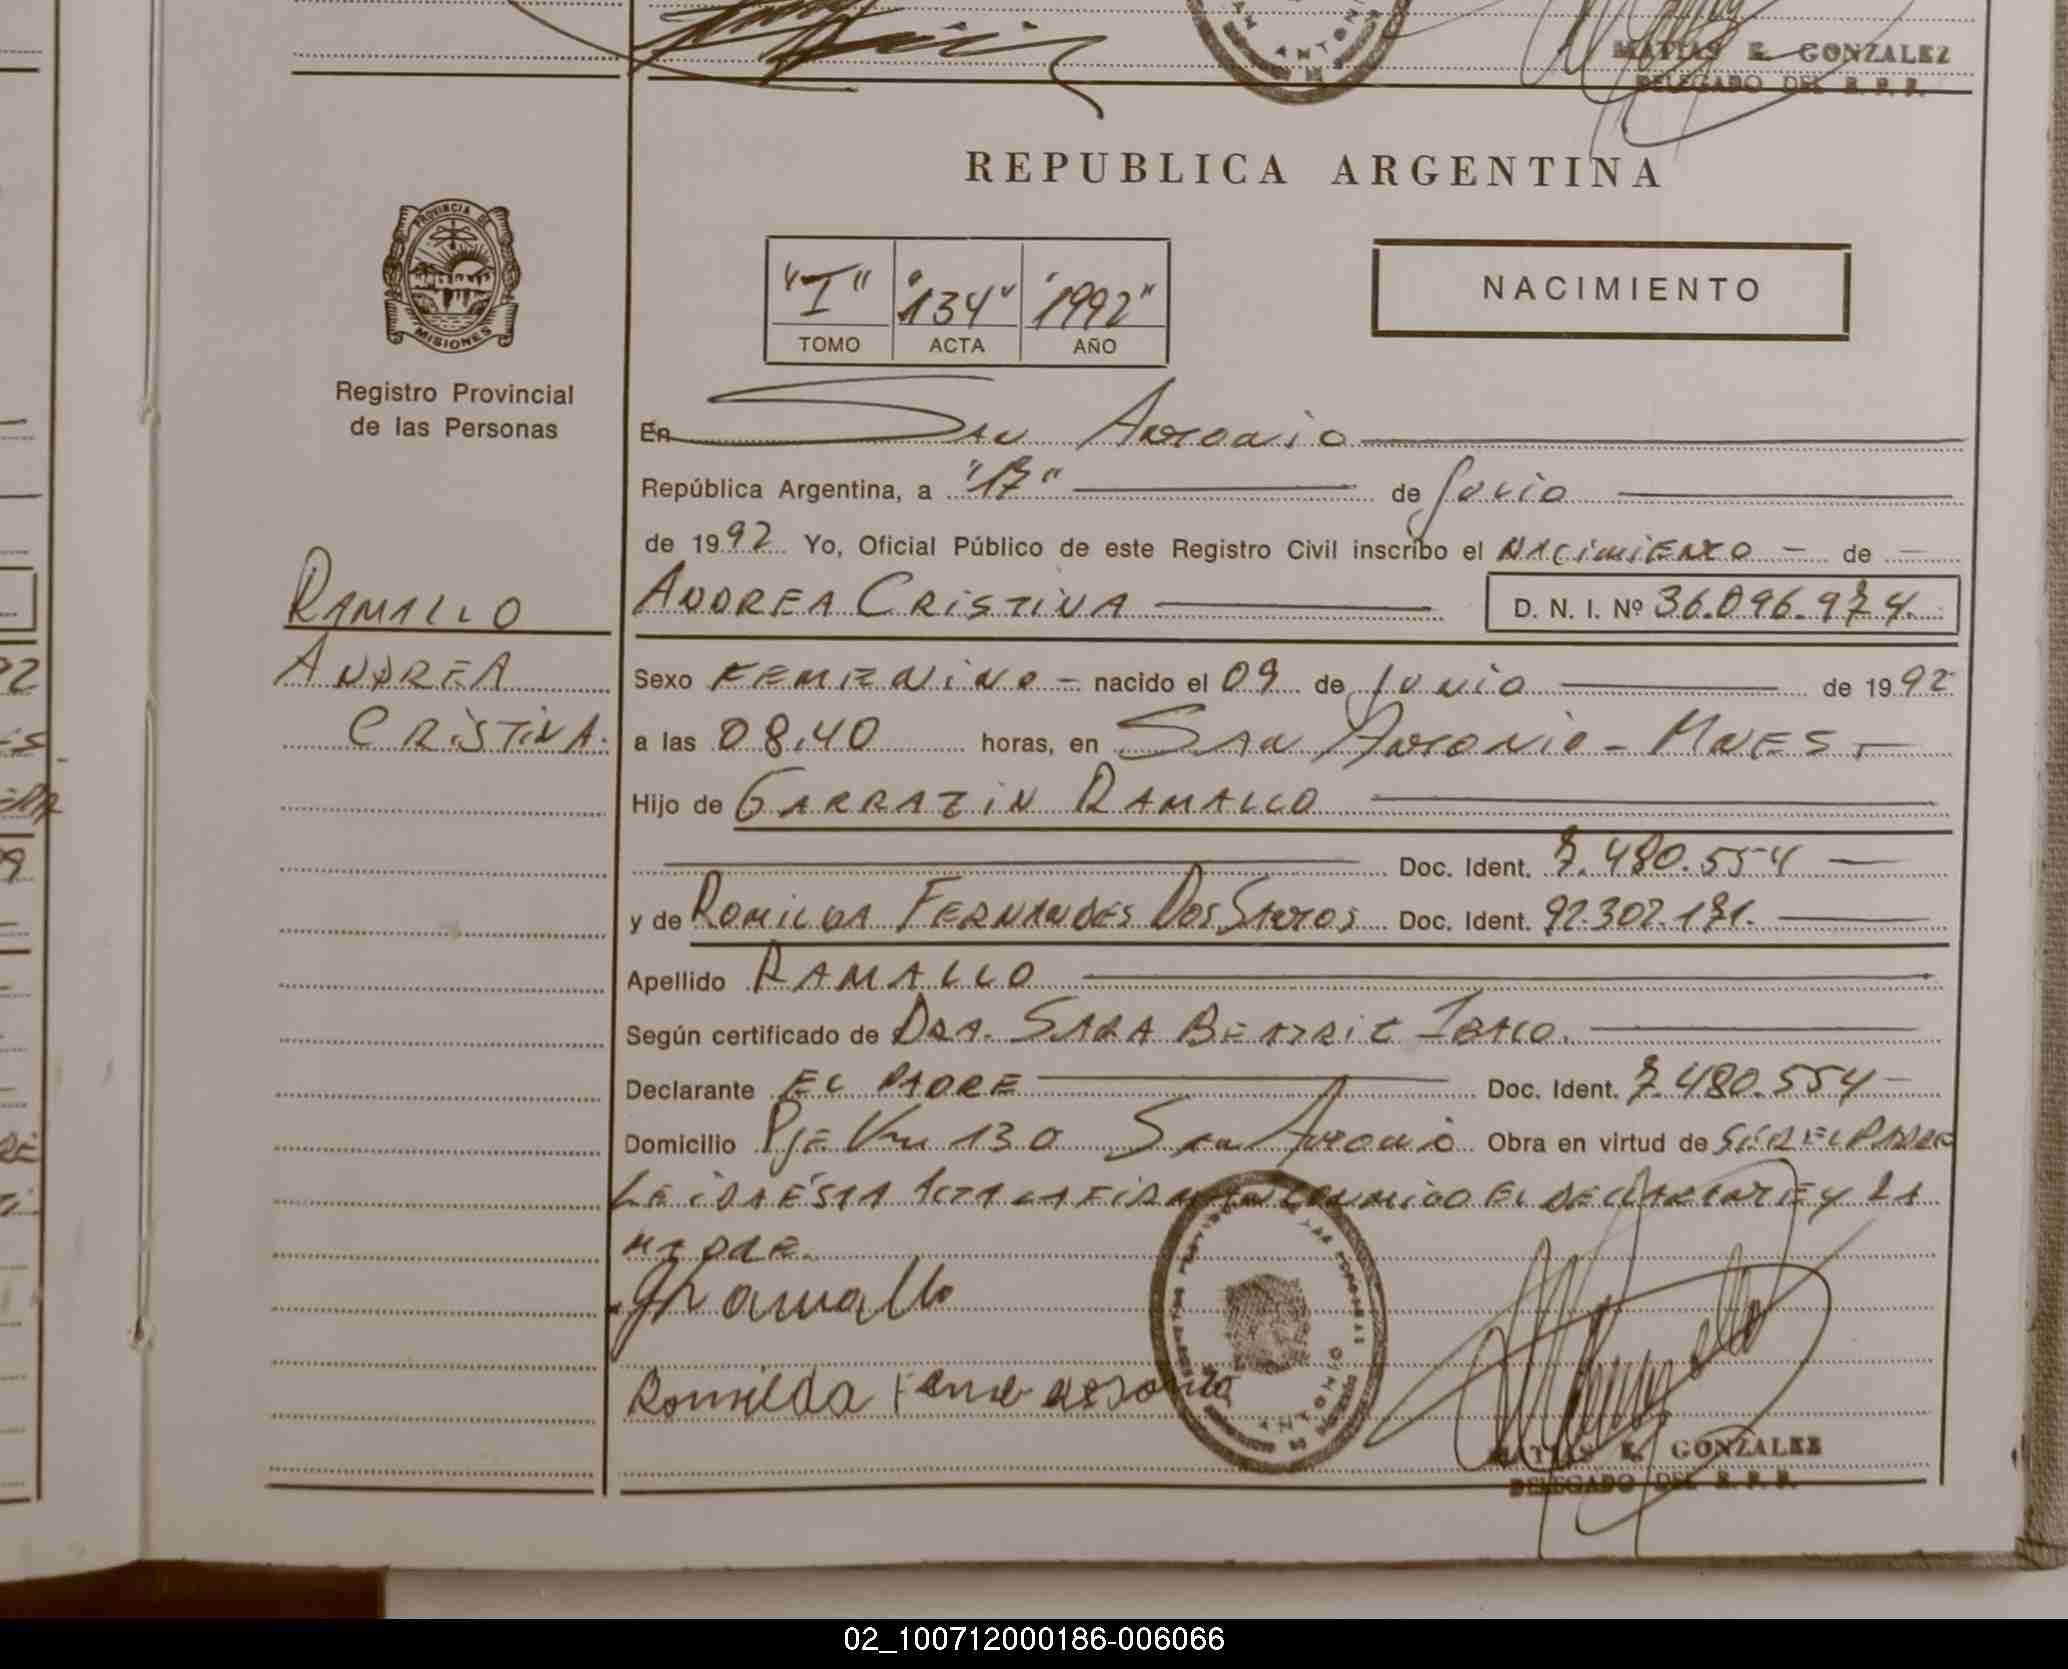 MATIAS E. GONZALEZ
DELEGADO DEL R. P. P.
REPUBLICA ARGENTINA
PROVINCIA DE
MISIONES
Registro Provincial
de las Personas
"I" "134" "1992"
TOMO ACTA AÑO
NACIMIENTO
En San Antonio
República Argentina, a "17" de Junio
de 1992 Yo, Oficial Público de este Registro Civil inscribo el NACIMIENTO - de -
RAMALLO
ANDREA
CRISTINA.
ANDREA CRISTINA D. N. I. Nº 36.096.974.
Sexo FEMENINO - nacido el 09 de Junio de 1992
a las 08,40 horas, en SAN ANTONIO - MNES -
Hijo de GARRAZIN RAMALLO
Doc. Ident. 7.480.554
y de ROMILDA FERNANDES DOS SANTOS Doc. Ident. 92.302.171.
Apellido RAMALLO
Según certificado de DRA. SARA BEATRIZ
Declarante EL PADRE Doc. Ident. 7.480.554
Domicilio PJE 130 San Antonio Obra en virtud de SER EL PADRE
LEIDA ÉSTA ACTA LA FIRMAN CONMIGO EL DECLARANTE y LA
MADRE.
Ramallo
Romilda
ANTONIO
MATIAS E. GONZALEZ
DELEGADO DEL R. P. P.
02_100712000186-006066